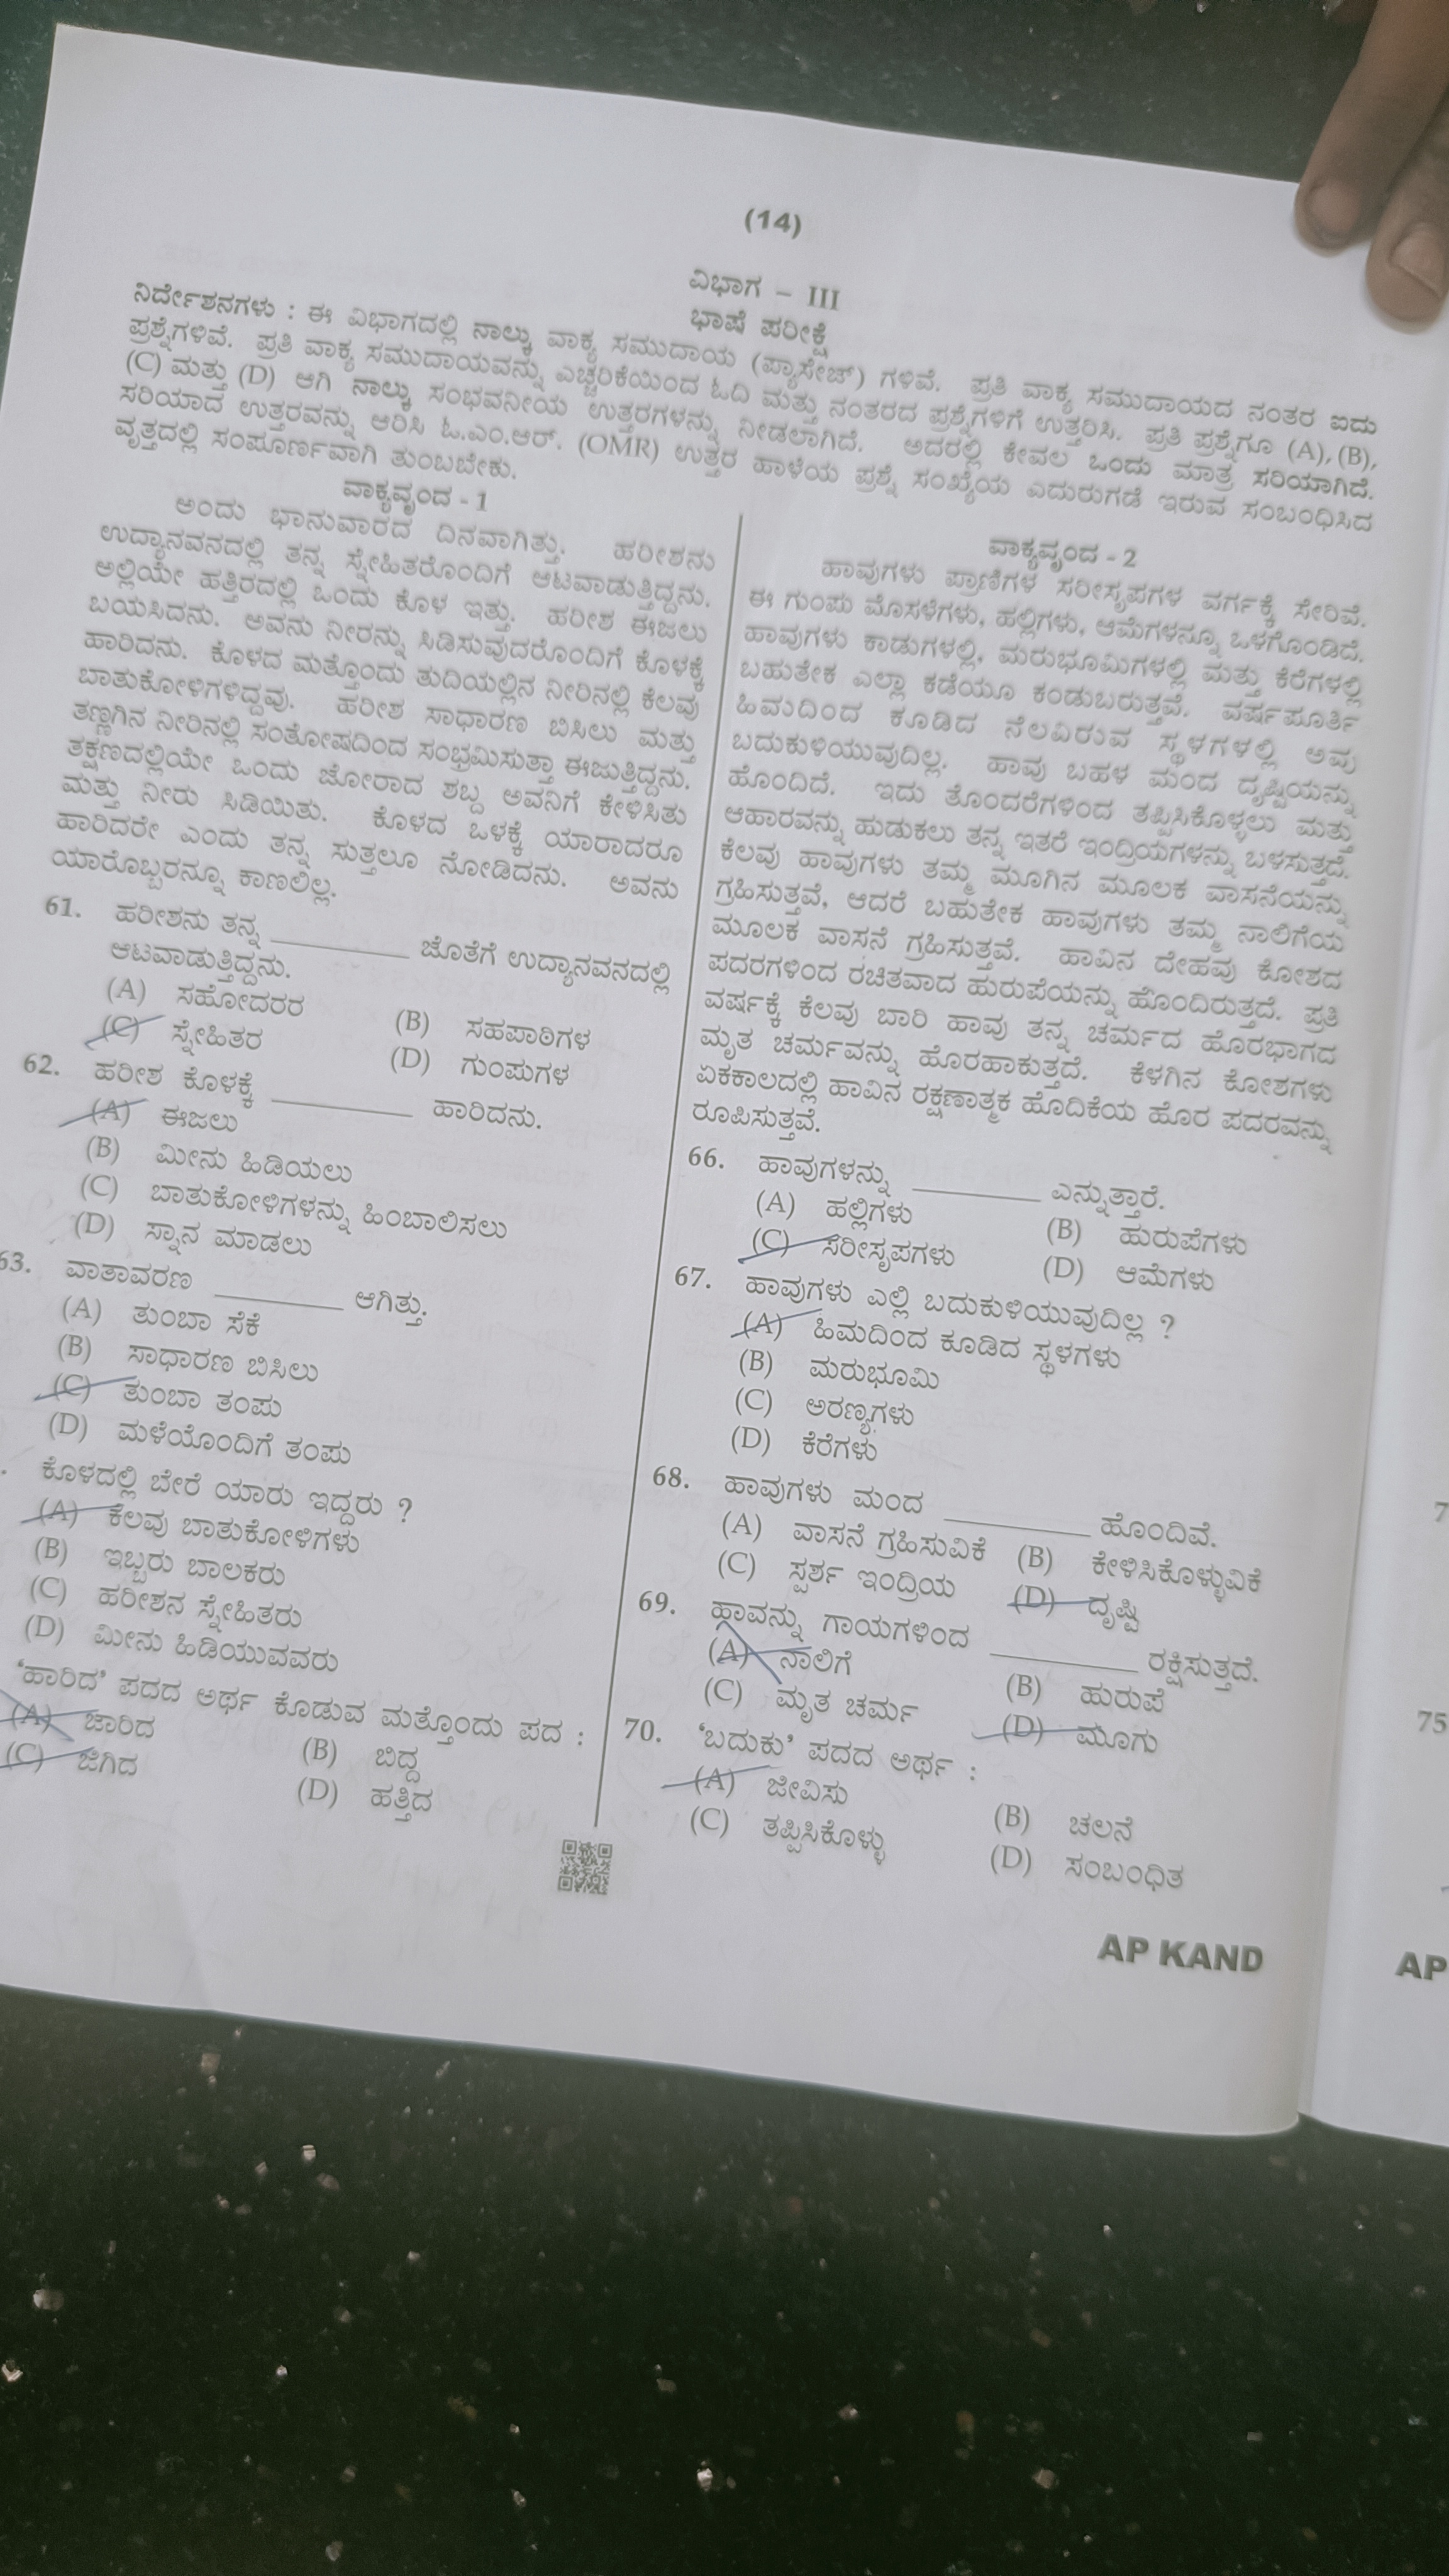 (14)
ವಿಭಾಗ – III
ಭಾಷೆ ಪರೀಕ್ಷೆ
ನಿರ್ದೇಶನಗಳು : ಈ ವಿಭಾಗದಲ್ಲಿ ನಾಲ್ಕು ವಾಕ್ಯ ಸಮುದಾಯ (ಪ್ಯಾಸೇಜ್) ಗಳಿವೆ. ಪ್ರತಿ ವಾಕ್ಯ ಸಮುದಾಯದ ನಂತರ ಐದು
ಪ್ರಶ್ನೆಗಳಿವೆ. ಪ್ರತಿ ವಾಕ್ಯ ಸಮುದಾಯವನ್ನು ಎಚ್ಚರಿಕೆಯಿಂದ ಓದಿ ಮತ್ತು ನಂತರದ ಪ್ರಶ್ನೆಗಳಿಗೆ ಉತ್ತರಿಸಿ. ಪ್ರತಿ ಪ್ರಶ್ನೆಗೂ (A), (B),
(C) ಮತ್ತು (D) ಆಗಿ ನಾಲ್ಕು ಸಂಭವನೀಯ ಉತ್ತರಗಳನ್ನು ನೀಡಲಾಗಿದೆ. ಅದರಲ್ಲಿ ಕೇವಲ ಒಂದು ಮಾತ್ರ ಸರಿಯಾಗಿದೆ.
ಸರಿಯಾದ ಉತ್ತರವನ್ನು ಆರಿಸಿ ಓ.ಎಂ.ಆರ್. (OMR) ಉತ್ತರ ಹಾಳೆಯ ಪ್ರಶ್ನೆ ಸಂಖ್ಯೆಯ ಎದುರುಗಡೆ ಇರುವ ಸಂಬಂಧಿಸಿದ
ವೃತ್ತದಲ್ಲಿ ಸಂಪೂರ್ಣವಾಗಿ ತುಂಬಬೇಕು.
ವಾಕ್ಯವೃಂದ - 1
ಅಂದು ಭಾನುವಾರದ ದಿನವಾಗಿತ್ತು. ಹರೀಶನು
ಉದ್ಯಾನವನದಲ್ಲಿ ತನ್ನ ಸ್ನೇಹಿತರೊಂದಿಗೆ ಆಟವಾಡುತ್ತಿದ್ದನು.
ಅಲ್ಲಿಯೇ ಹತ್ತಿರದಲ್ಲಿ ಒಂದು ಕೊಳ ಇತ್ತು. ಹರೀಶ ಈಜಲು
ಬಯಸಿದನು. ಅವನು ನೀರನ್ನು ಸಿಡಿಸುವುದರೊಂದಿಗೆ ಕೊಳಕ್ಕೆ
ಹಾರಿದನು. ಕೊಳದ ಮತ್ತೊಂದು ತುದಿಯಲ್ಲಿನ ನೀರಿನಲ್ಲಿ ಕೆಲವು
ಬಾತುಕೋಳಿಗಳಿದ್ದವು. ಹರೀಶ ಸಾಧಾರಣ ಬಿಸಿಲು ಮತ್ತು
ತಣ್ಣಗಿನ ನೀರಿನಲ್ಲಿ ಸಂತೋಷದಿಂದ ಸಂಭ್ರಮಿಸುತ್ತಾ ಈಜುತ್ತಿದ್ದನು.
ತಕ್ಷಣದಲ್ಲಿಯೇ ಒಂದು ಜೋರಾದ ಶಬ್ದ ಅವನಿಗೆ ಕೇಳಿಸಿತು
ಮತ್ತು ನೀರು ಸಿಡಿಯಿತು. ಕೊಳದ ಒಳಕ್ಕೆ ಯಾರಾದರೂ
ಹಾರಿದರೇ ಎಂದು ತನ್ನ ಸುತ್ತಲೂ ನೋಡಿದನು. ಅವನು
ಯಾರೊಬ್ಬರನ್ನೂ ಕಾಣಲಿಲ್ಲ.
61. ಹರೀಶನು ತನ್ನ ________ ಜೊತೆಗೆ ಉದ್ಯಾನವನದಲ್ಲಿ
ಆಟವಾಡುತ್ತಿದ್ದನು.
(A) ಸಹೋದರರ (B) ಸಹಪಾಠಿಗಳ
(C) ಸ್ನೇಹಿತರ (D) ಗುಂಪುಗಳ
62. ಹರೀಶ ಕೊಳಕ್ಕೆ ________ ಹಾರಿದನು.
(A) ಈಜಲು
(B) ಮೀನು ಹಿಡಿಯಲು
(C) ಬಾತುಕೋಳಿಗಳನ್ನು ಹಿಂಬಾಲಿಸಲು
(D) ಸ್ನಾನ ಮಾಡಲು
63. ವಾತಾವರಣ ________ ಆಗಿತ್ತು.
(A) ತುಂಬಾ ಸೆಕೆ
(B) ಸಾಧಾರಣ ಬಿಸಿಲು
(C) ತುಂಬಾ ತಂಪು
(D) ಮಳೆಯೊಂದಿಗೆ ತಂಪು
. ಕೊಳದಲ್ಲಿ ಬೇರೆ ಯಾರು ಇದ್ದರು ?
(A) ಕೆಲವು ಬಾತುಕೋಳಿಗಳು
(B) ಇಬ್ಬರು ಬಾಲಕರು
(C) ಹರೀಶನ ಸ್ನೇಹಿತರು
(D) ಮೀನು ಹಿಡಿಯುವವರು
‘ಹಾರಿದ’ ಪದದ ಅರ್ಥ ಕೊಡುವ ಮತ್ತೊಂದು ಪದ :
(A) ಜಾರಿದ (B) ಬಿದ್ದ
(C) ಜಿಗಿದ (D) ಹತ್ತಿದ
ವಾಕ್ಯವೃಂದ - 2
ಹಾವುಗಳು ಪ್ರಾಣಿಗಳ ಸರೀಸೃಪಗಳ ವರ್ಗಕ್ಕೆ ಸೇರಿವೆ.
ಈ ಗುಂಪು ಮೊಸಳೆಗಳು, ಹಲ್ಲಿಗಳು, ಆಮೆಗಳನ್ನೂ ಒಳಗೊಂಡಿದೆ.
ಹಾವುಗಳು ಕಾಡುಗಳಲ್ಲಿ, ಮರುಭೂಮಿಗಳಲ್ಲಿ ಮತ್ತು ಕೆರೆಗಳಲ್ಲಿ
ಬಹುತೇಕ ಎಲ್ಲಾ ಕಡೆಯೂ ಕಂಡುಬರುತ್ತವೆ. ವರ್ಷಪೂರ್ತಿ
ಹಿಮದಿಂದ ಕೂಡಿದ ನೆಲವಿರುವ ಸ್ಥಳಗಳಲ್ಲಿ ಅವು
ಬದುಕುಳಿಯುವುದಿಲ್ಲ. ಹಾವು ಬಹಳ ಮಂದ ದೃಷ್ಟಿಯನ್ನು
ಹೊಂದಿದೆ. ಇದು ತೊಂದರೆಗಳಿಂದ ತಪ್ಪಿಸಿಕೊಳ್ಳಲು ಮತ್ತು
ಆಹಾರವನ್ನು ಹುಡುಕಲು ತನ್ನ ಇತರೆ ಇಂದ್ರಿಯಗಳನ್ನು ಬಳಸುತ್ತದೆ.
ಕೆಲವು ಹಾವುಗಳು ತಮ್ಮ ಮೂಗಿನ ಮೂಲಕ ವಾಸನೆಯನ್ನು
ಗ್ರಹಿಸುತ್ತವೆ, ಆದರೆ ಬಹುತೇಕ ಹಾವುಗಳು ತಮ್ಮ ನಾಲಿಗೆಯ
ಮೂಲಕ ವಾಸನೆ ಗ್ರಹಿಸುತ್ತವೆ. ಹಾವಿನ ದೇಹವು ಕೋಶದ
ಪದರಗಳಿಂದ ರಚಿತವಾದ ಹುರುಪೆಯನ್ನು ಹೊಂದಿರುತ್ತದೆ. ಪ್ರತಿ
ವರ್ಷಕ್ಕೆ ಕೆಲವು ಬಾರಿ ಹಾವು ತನ್ನ ಚರ್ಮದ ಹೊರಭಾಗದ
ಮೃತ ಚರ್ಮವನ್ನು ಹೊರಹಾಕುತ್ತದೆ. ಕೆಳಗಿನ ಕೋಶಗಳು
ಏಕಕಾಲದಲ್ಲಿ ಹಾವಿನ ರಕ್ಷಣಾತ್ಮಕ ಹೊದಿಕೆಯ ಹೊರ ಪದರವನ್ನು
ರೂಪಿಸುತ್ತವೆ.
66. ಹಾವುಗಳನ್ನು ________ ಎನ್ನುತ್ತಾರೆ.
(A) ಹಲ್ಲಿಗಳು (B) ಹುರುಪೆಗಳು
(C) ಸರೀಸೃಪಗಳು (D) ಆಮೆಗಳು
67. ಹಾವುಗಳು ಎಲ್ಲಿ ಬದುಕುಳಿಯುವುದಿಲ್ಲ ?
(A) ಹಿಮದಿಂದ ಕೂಡಿದ ಸ್ಥಳಗಳು
(B) ಮರುಭೂಮಿ
(C) ಅರಣ್ಯಗಳು
(D) ಕೆರೆಗಳು
68. ಹಾವುಗಳು ಮಂದ ________ ಹೊಂದಿವೆ.
(A) ವಾಸನೆ ಗ್ರಹಿಸುವಿಕೆ (B) ಕೇಳಿಸಿಕೊಳ್ಳುವಿಕೆ
(C) ಸ್ಪರ್ಶ ಇಂದ್ರಿಯ (D) ದೃಷ್ಟಿ
69. ಹಾವನ್ನು ಗಾಯಗಳಿಂದ ________ ರಕ್ಷಿಸುತ್ತದೆ.
(A) ನಾಲಿಗೆ (B) ಹುರುಪೆ
(C) ಮೃತ ಚರ್ಮ (D) ಮೂಗು
70. ‘ಬದುಕು’ ಪದದ ಅರ್ಥ :
(A) ಜೀವಿಸು (B) ಚಲನೆ
(C) ತಪ್ಪಿಸಿಕೊಳ್ಳು (D) ಸಂಬಂಧಿತ
AP KAND
7
75
AP